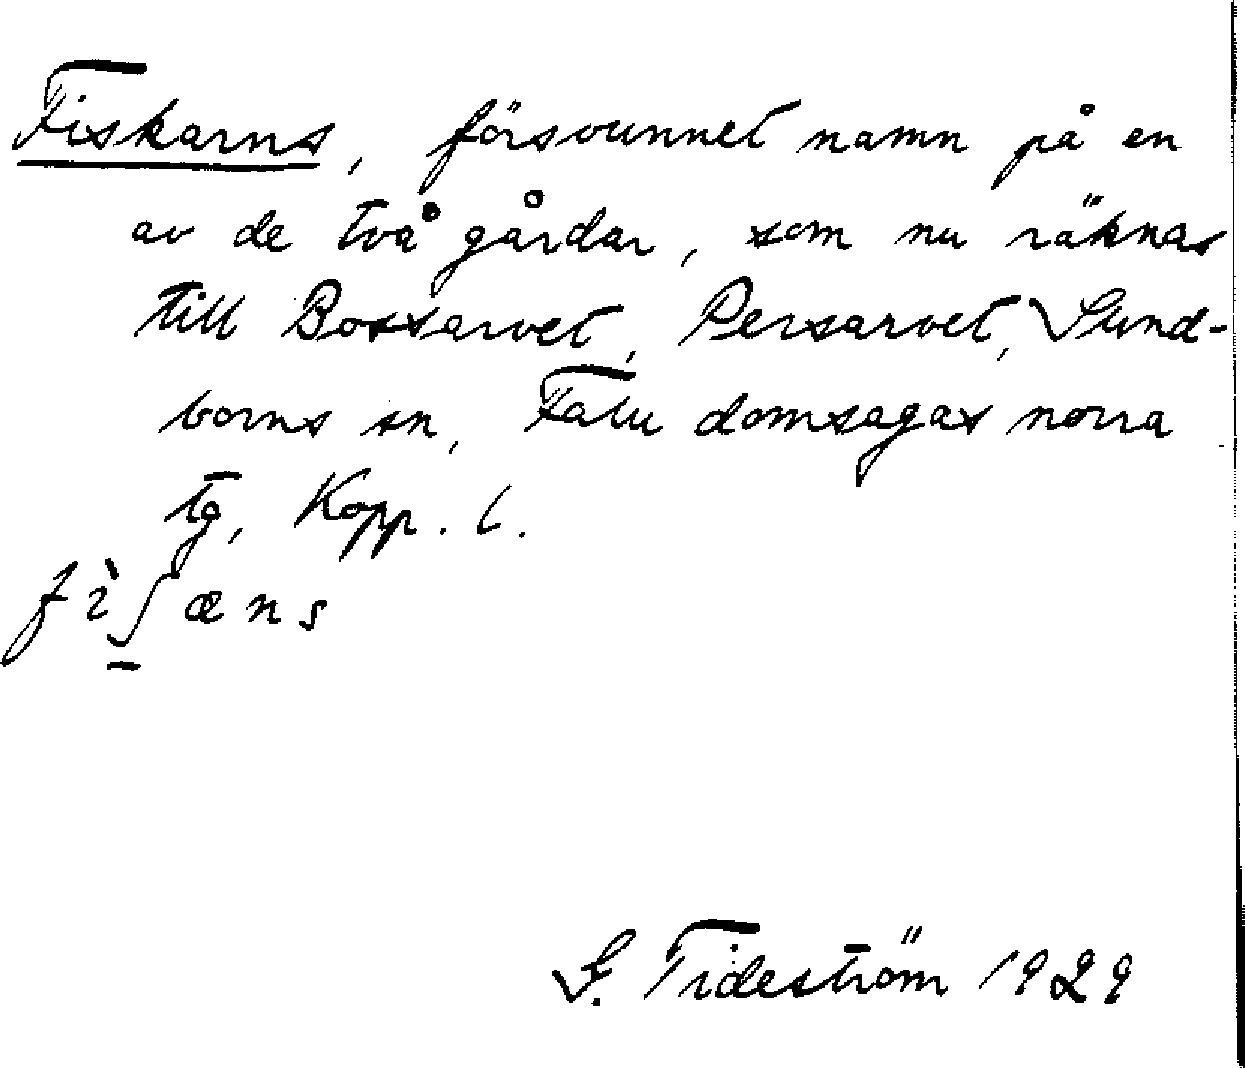 Fiskarns, försvunnet namn på en
av de två gårdar, som nu räknas
till Bossarvet, Persarvet, Sund-
borns sn, Falu domsagas norra
tg, Kopp. l.
fìʃæns
G. Tideström 1929